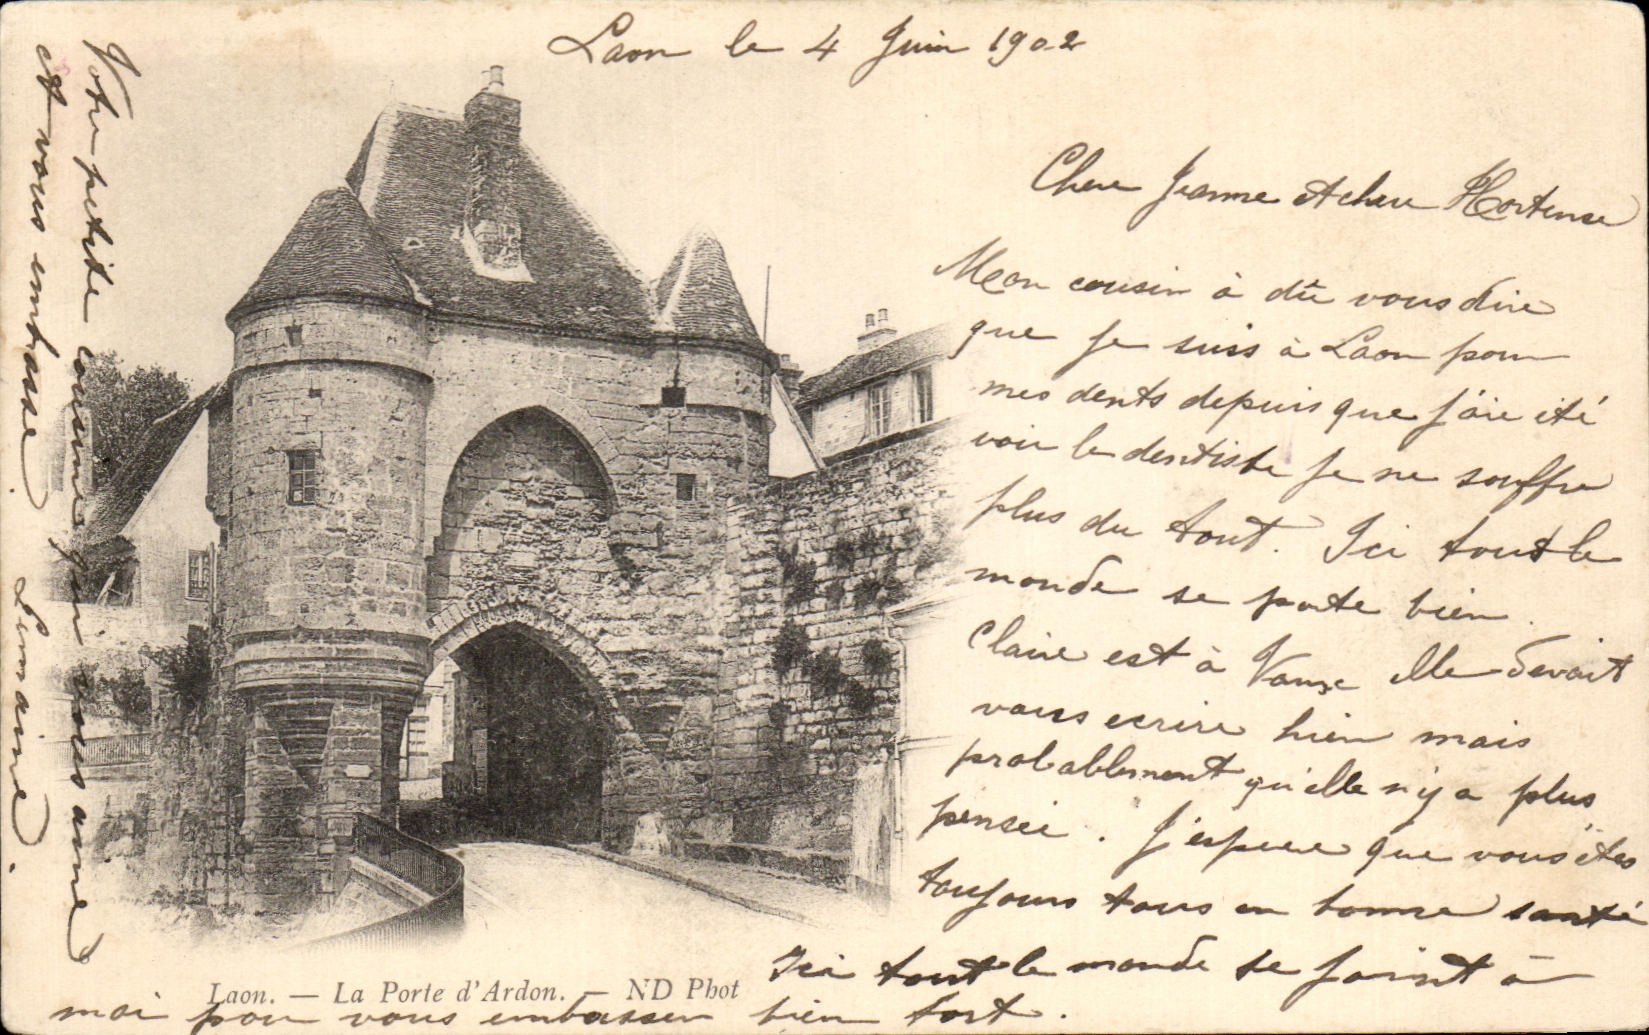 Laon le 4 Juin 1902
Chere Jeanne et chere Hortense
Mon cousin à dû vous dire
que je suis à Laon pour
mes dents depuis que j'aie été
voir le dentiste je ne souffre
plus du tout. Ici tout le
monde se porte bien.
Claire est à Vaux elle devait
vous ecrire hier mais
probablement qu'elle n'y a plus
pensée. J'espere que vous êtes
toujours tous en bonne santé
Ici tout le monde se joint à
moi pour vous embrasser bien fort.
Votre petite cousine qui vous aime
et vous embrasse.
Germaine.
Laon. — La Porte d'Ardon. — ND Phot